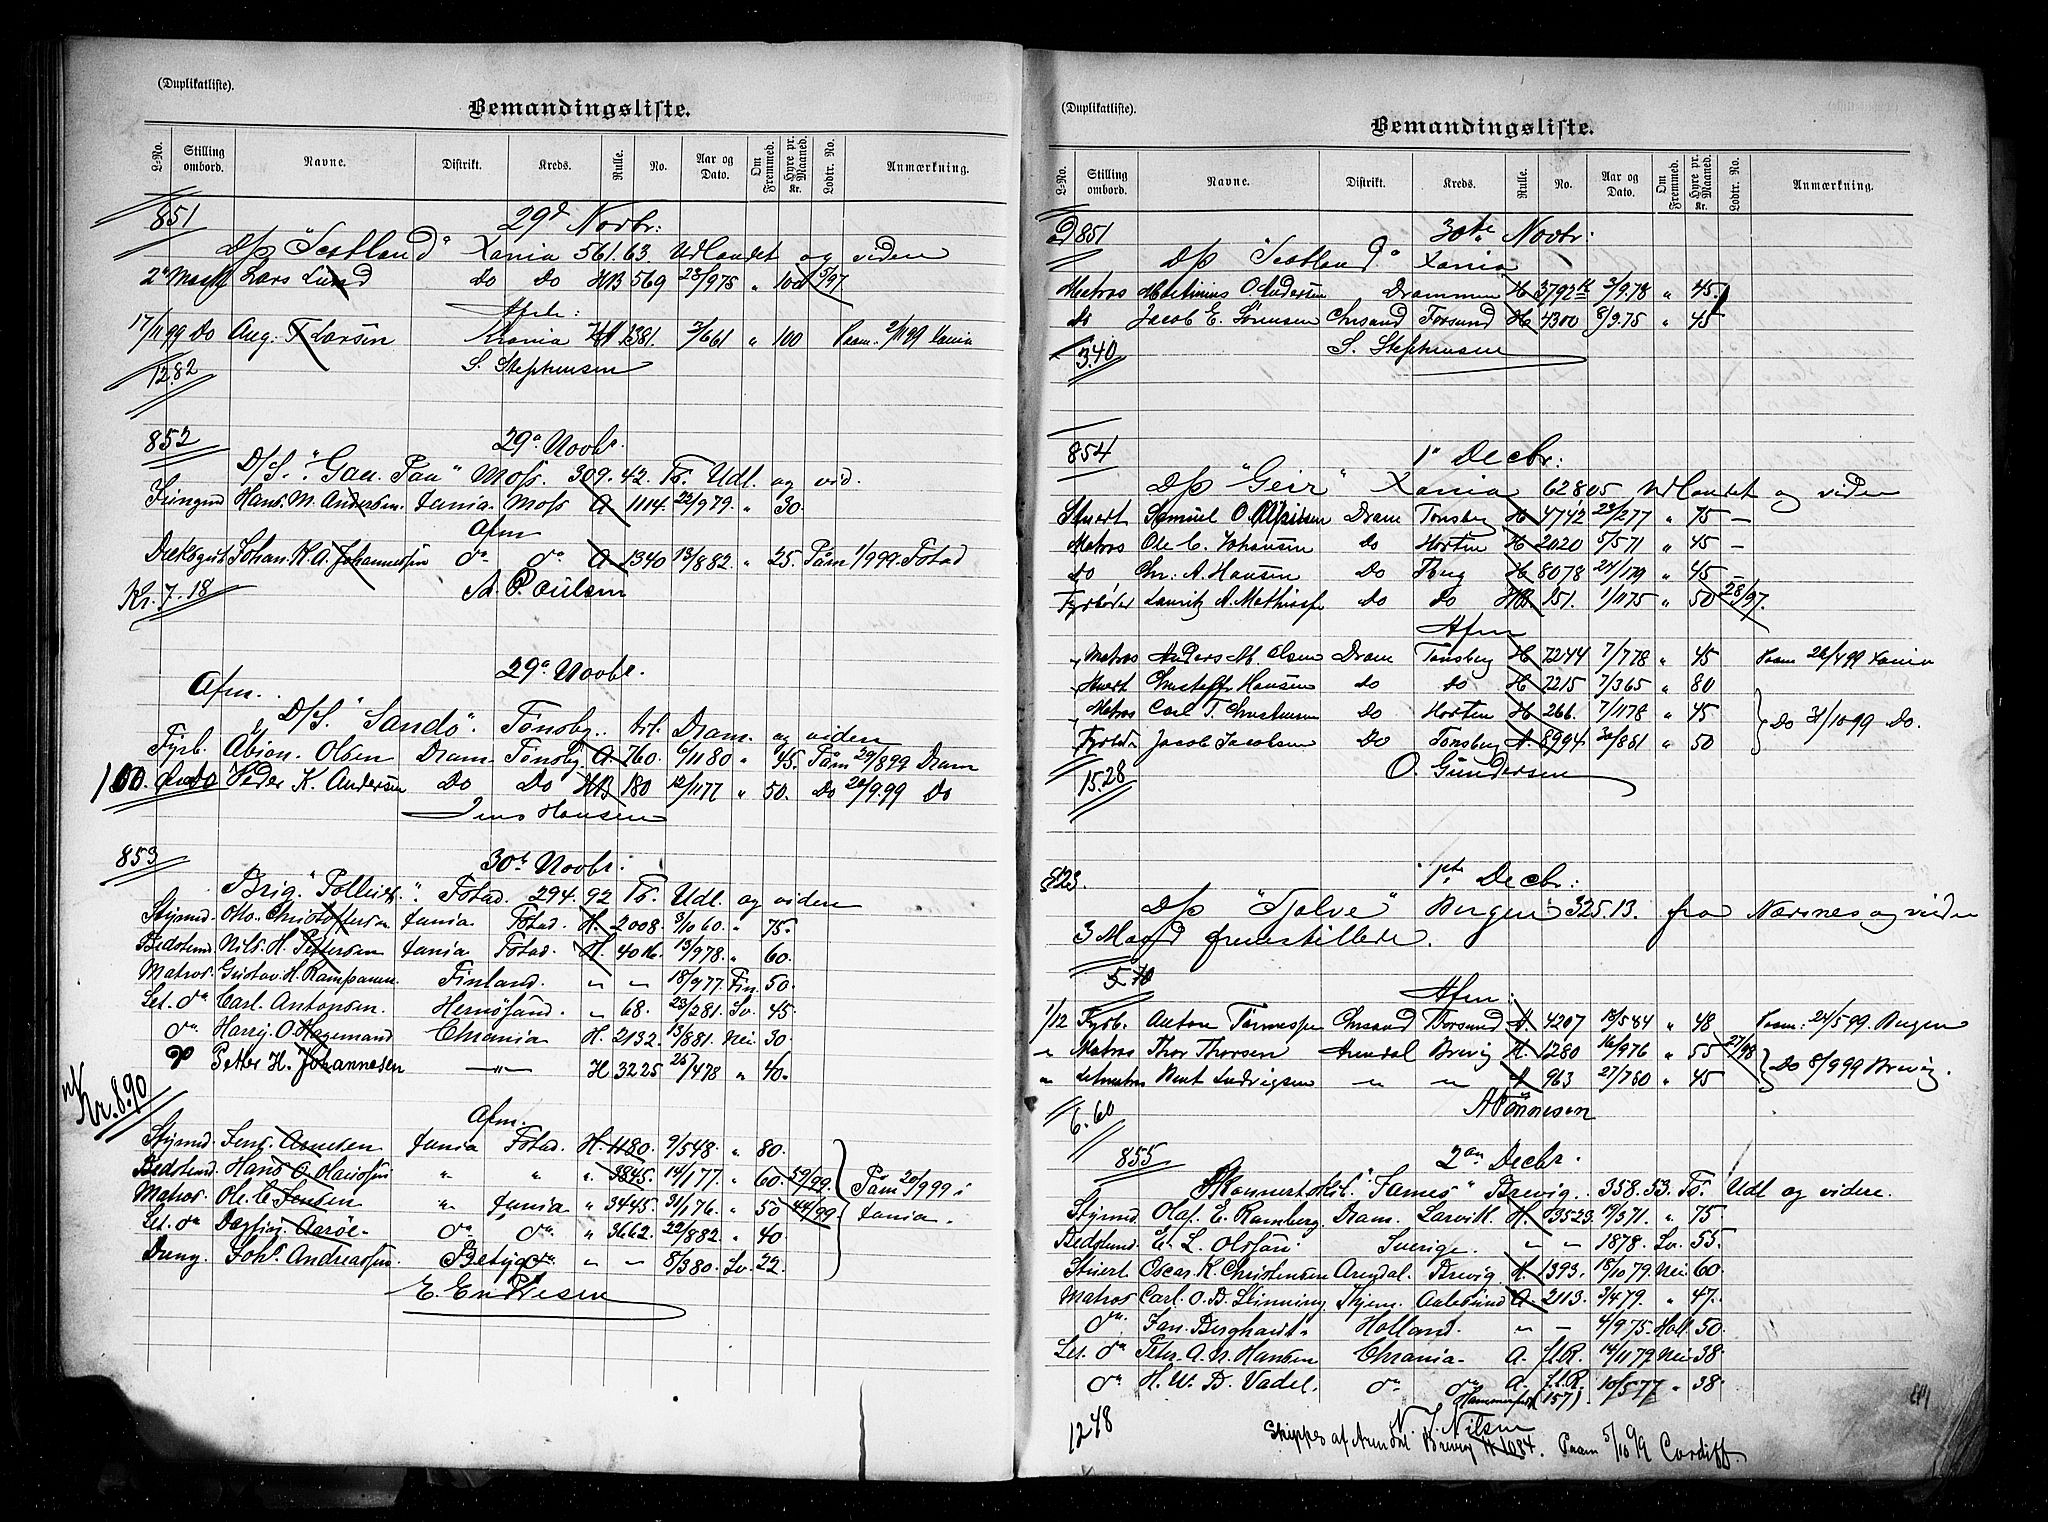 (Duplikatliste).
Bemandingsliste.
L-No. Stilling ombord. Navne. Distrikt. Kreds. Rulle. No. Aar og Dato. Om Fremmed. Hyre pr. Maaned. Kr. Lodtr. No. Anmærkning.
851 29d Novbr:
D/p "Scotland" Xania 561.63 Udlandet og videre
Lars Lund Do Do HB 569 23/9 75 " 100 5/97
Afm:
17/11 99 Do Aug. F Larsen Krania 1381. 2/6 61 " 100 Paam. Xania
12.82 S. Stephensen
852 29d Novbr.
D/S. Moss. 309.42 Ts. Udl. og vid.
Hans. M. Andersen. Fania. Moss A 1114. 22/9 79 " 30
Afm
Johan. K. A. Johannessen do do A 1340 13/8 82. " 25. Påm 1/9 99 Fstad
Kr. 7.18
29d Novbr.
Afm.
D/S. "Sandö". Tönsbg. til Dram. og videre
Fyrb. Olsen Dram. Tönsbg A 760. 6/11 80 " 45. Påm 29/8 99 Dram
Peder K. Andersen Do Do HB 180 12/11 77 " 50. Do 20/9.99 Do
Jens Hansen
853 30t Novbr.
Brig. Fstad. 294.92 Ts. Udl. og videre
Styrmd. Otto. Christoffersen Fania. Fstad. H. 2008. 3/10 60. " 75.
Bedstmd. Nils. H. Pettersen Fania. Fstad. H. 4016. 13/9 78. " 60.
Matros. Gustav. H. Finland. " " 18/9 77. Fin. 50.
Let. do Carl. Antonsen. Hernösand. " 68. 23/2 81. Sv. 45.
do Harry. O. Hagemand Chrania H. 2132. 13/8 81. Nei. 30
Petter H. Johannesen —"— H 3225 25/4 78 " 40.
Kr. 8.90
Afm.
Styrmd. Jens. Arnesen Fania Fstad. H. 1180. 9/5 48. " 80.
Bedstmd. Hans O. " " " 3845. 14/1 77. " 60. 59/99.
Matros. Ole. C. Jensen " Fania " 3445. 31/1 76. " 50 44/99 Påm 20/9 99 i
Let. do do do " 3662. 22/8 82. " 40. Fania.
Dreng. Johs. Andreassen " " 8/3 80. Sv. 22.
E. Eriksen
(Duplikatliste).
Bemandingsliste.
L-No. Stilling ombord. Navne. Distrikt. Kreds. Rulle. No. Aar og Dato. Om Fremmed. Hyre pr. Maaned. Kr. Lodtr. No. Anmærkning.
ad 851 30te Novbr:
D/p "Scotland" Xania
Matros O. Andersen Drammen H 3792 3/9.78 " 45.
do Jacob E. Sørensen Chrsand Farsund H 4300 8/9.75 " 45
3.40 S. Stephensen
854 1e Decbr:
D/p "Geir" Xania 628.05 Udlandet og videre
Stuert Samuel O. Dram Tønsberg H 4742 23/2 77 " 75 —
Matros Ole C. Johansen do Horten H 2020 5/5 71 " 45 —
do Chr: A. Hansen Do Tbrg H 8078 24/1 79 " 45 —
Fyrbøder Lauritz A. Mathiass Do do HB 151. 1/11 75 " 50 28/97.
Afm
Matros Anders M. Olsen Dram Tønsberg H 7244 7/7 78 " 45 Paam Xania
Stuert Christoffr Hansen do do H 7215 7/3 65 " 80
Matros Carl T. Christensen Do Horten H 266. 7/11 78 " 45 Do 31/10 99 Do.
Fyrbøder Jacob Jacobsen Do Tønsberg A. 8994 30/8 61 " 50
15.28 O. Gundersen
823. 1ste Decbr:
D/p "Tjalve" Bergen 325.13. fra Nærsnes og videre
3 Mand fremstillede.
5.70
Afm:
1/12 Fyrb. Anton Chrsand Farsund A 4207 18/5 84 " 48 Paam: 24/5 99. Bergen
" Matros Thor Thorsen Arendal Brevig H. 1280 16/9 76 " 55 27/98
" Letmatros Bent Ludvigsen " " A 963 27/7 80 " 45 Do 8/9 99 Brevig.
6.60 A Tönnesen
855 2den Decbr.
Skonnertskib. "James" Brevig. 358.53. Ts. Udl og videre.
Styrmd. Olaf. E. Ramberg. Dram. Larvik. H. 13523. 19/3 71. " 75
Bedstmd. E. L. Olsson Sverige. " " 1878. Sv. 55.
Stuert Oscar. K. Christensen Arendal. Brevig. H. 1393. 18/10 79. Nei 60.
Matros Carl. O. B. Slinning Thjem. Aalesund A. 2113. 3/4 79. " 47.
do Jan. Berghardt. Holland. " — 4/9 75. Holl 50.
Let. do Peter. A. N. Hansen Chrania. A. f.l.R. 14/11 79. Nei 38
do H. W. B. Vadel. do do A. f.l.R. 10/5 77 " 38.
Hammerfest (157)
12.48 N. J. Nilsen
Skippes af Arendal Brevig H 1084. Paam 5/10 99 Cardiff.